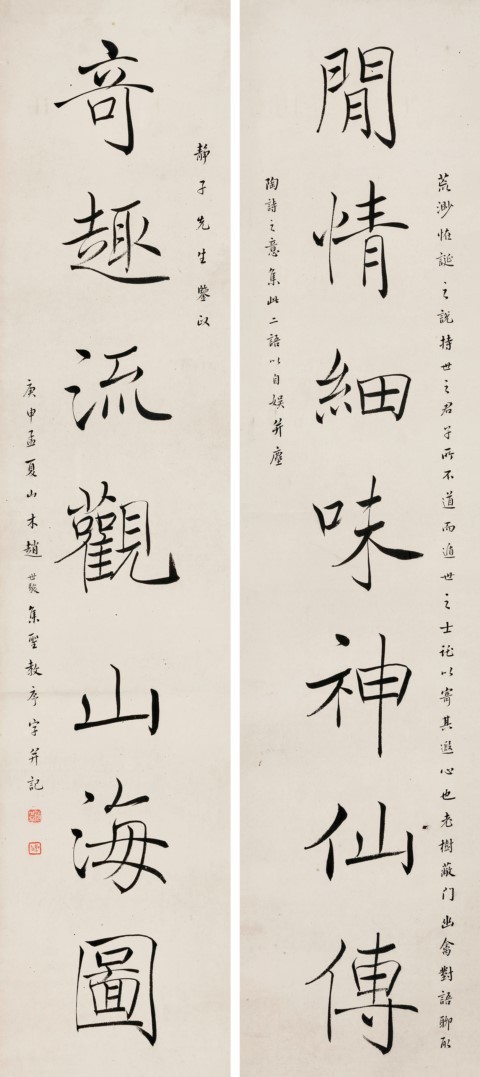 荒渺恠誕之說持世之君子所不道而遁世之士託以寄其遐心也老樹蔽门幽禽對語聊取
閒情細味神仙傳
陶詩之意集此二語以自娱并塵
靜子先生鑒政
奇趣流觀山海圖
庚申孟夏山木趙世駿集聖教序字并記